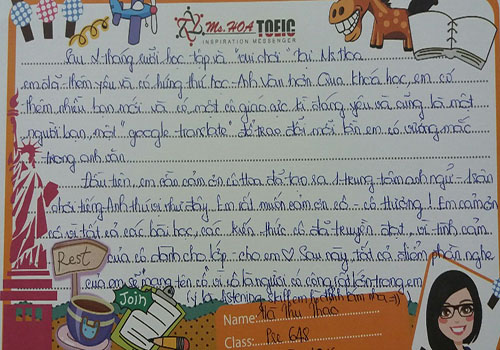 Ms. HOA TOEIC
INSPIRATION MESSENGER
Sau 2 tháng cười học tập và vui chơi tại Ms Hoa
em đã thêm yêu và có hứng thú học Anh văn hơn. Qua khoá học, em có
thêm nhiều bạn mới và có một cô giáo cực kì đáng yêu và cũng là một
người bạn, một "google translate" để trao đổi mỗi lần em có vướng mắc
trong anh văn
Đầu tiên, em cần cảm ơn cô Hoa đã tạo ra 1 trung tâm anh ngữ - 1 sân
chơi tiếng Anh thú vị như thế này. Em rất muốn cảm ơn cô - cô thương! Em cảm ơn
cô vì tất cả các bài học, các kiến thức cô đã truyền đạt, vì tình cảm
của cô dành cho lớp - cho em ♡ Sau này, tất cả điểm phần nghe
của em sẽ mang tên cô vì cô là người có công to lớn trong em
(vì là listening skill em
Rest
Join
Name: Hà Thu Thảo
Class: Pre GA8